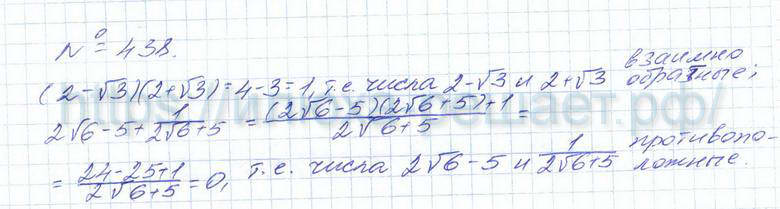 № 438.
(2-√3)(2+√3)=4-3=1, т.е. числа 2-√3 и 2+√3 взаимно обратные;
2√6-5+1/(2√6+5) = ((2√6-5)(2√6+5)+1)/(2√6+5) =
= (24-25+1)/(2√6+5) = 0, т.е. числа 2√6-5 и 1/(2√6+5) противопо-
ложные.